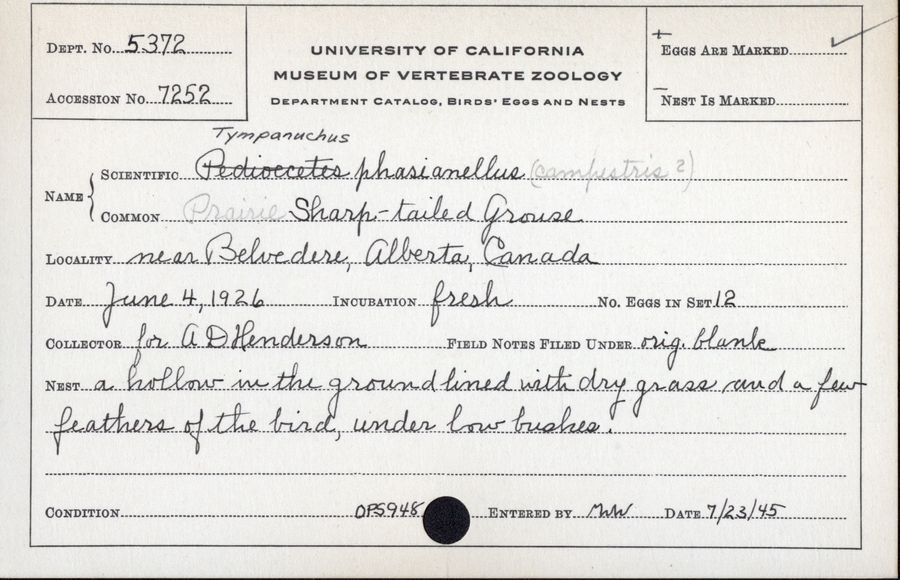 Dept. No. 5372
Accession No. 7252
UNIVERSITY OF CALIFORNIA
MUSEUM OF VERTEBRATE ZOOLOGY
Department Catalog, Birds' Eggs and Nests
+ Eggs Are Marked ✓
– Nest Is Marked
Tympanuchus
Name { Scientific Pedioecetes phasianellus (campestris?)
Common Prairie Sharp-tailed Grouse
Locality near Belvedere, Alberta, Canada
Date June 4, 1926 Incubation fresh No. Eggs in Set 12
Collector for A D Henderson Field Notes Filed Under orig. blank
Nest a hollow in the ground lined with dry grass and a few
feathers of the bird, under low bushes.
Condition OPS948 Entered by MW Date 7/23/45